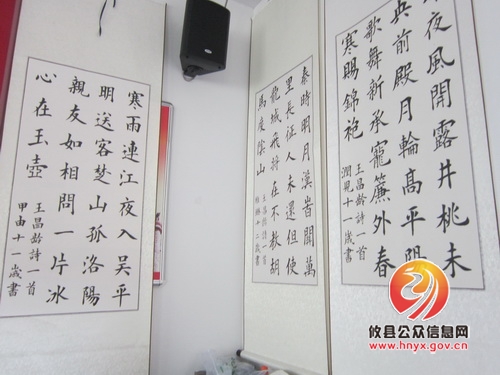 寒雨連江夜入吴平
明送客楚山孤洛陽
親友如相問一片冰
心在玉壺
王昌龄詩一首
甲由十一歲書
秦時明月漢旹關萬
里長征人未還但使
龍城飛將在不教胡
馬度陰山
王昌龄詩一首
十二歲書
夜風開露井桃未
央前殿月輪髙平陽
歌舞新承寵簾外春
寒賜錦袍
王昌龄詩一首
潤見十一歲書
攸县公众信息网
www.hnyx.gov.cn